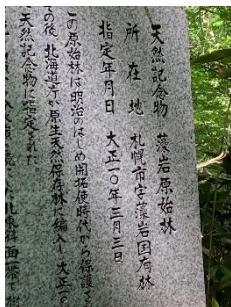 天然記念物　藻岩原始林
所在地　札幌市字藻岩国有林
指定年月日　大正一〇年三月三日
この原始林は明治のはじめ開拓使時代から保護さ
その後、北海道庁が原生天然保存林に編入し、大正一〇
天然記念物に指定された。